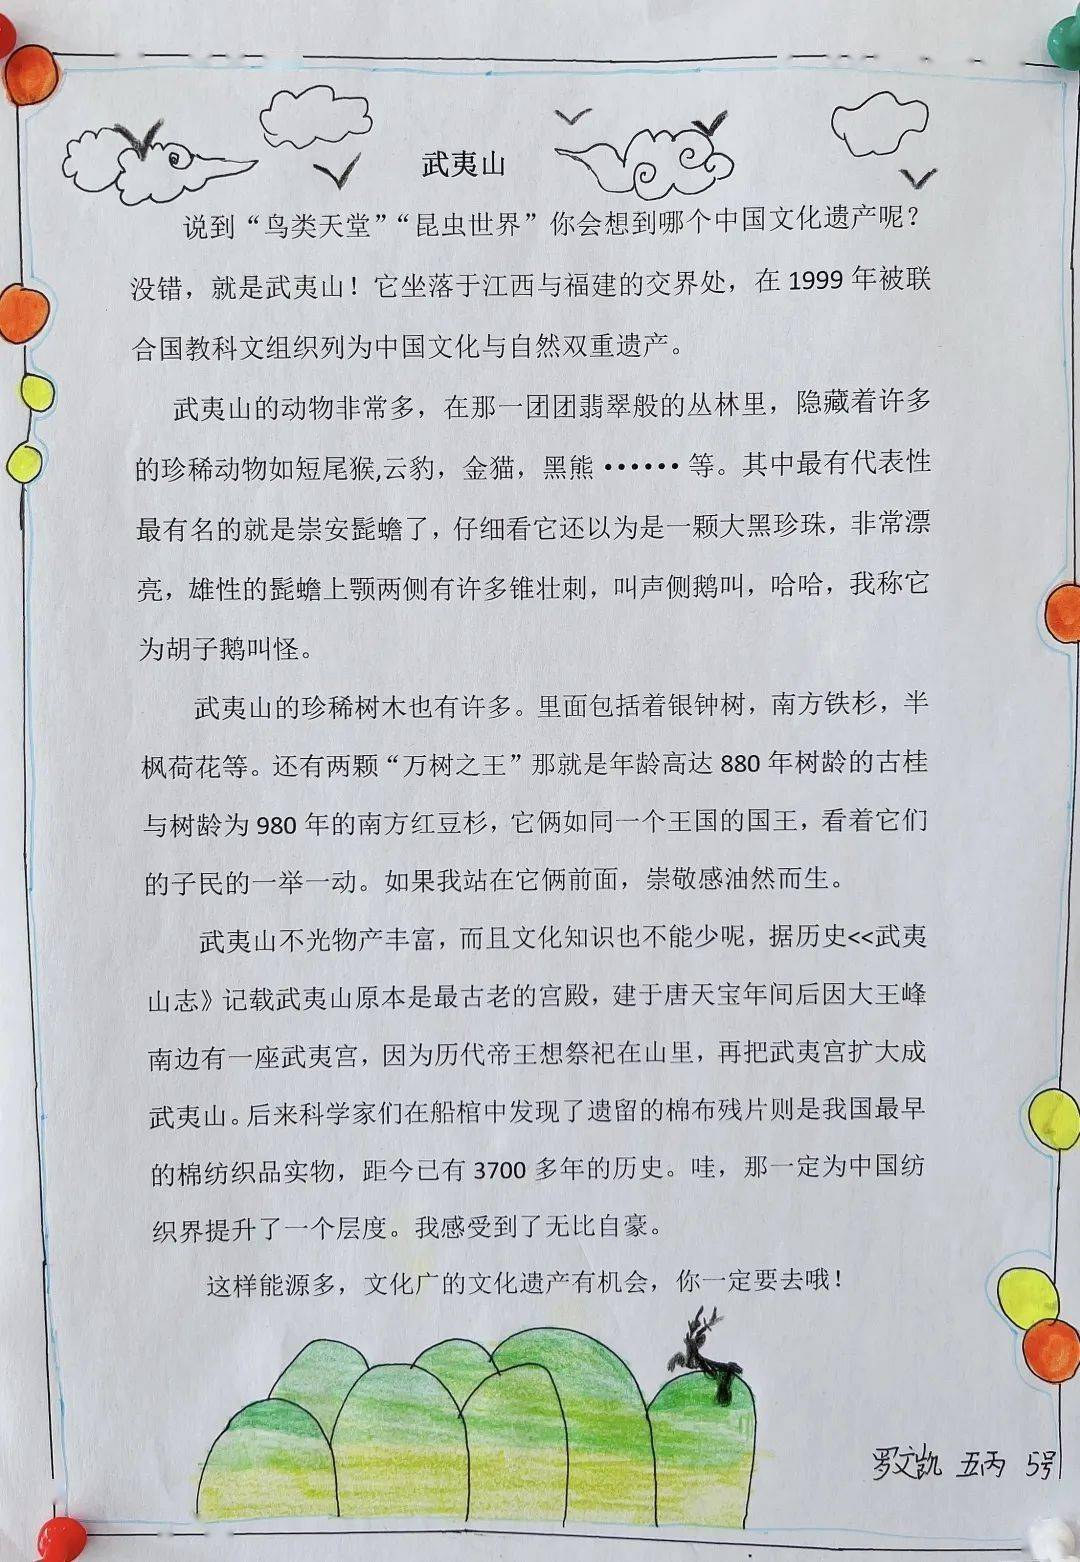 武夷山
说到“鸟类天堂”“昆虫世界”你会想到哪个中国文化遗产呢？
没错，就是武夷山！它坐落于江西与福建的交界处，在 1999 年被联
合国教科文组织列为中国文化与自然双重遗产。
武夷山的动物非常多，在那一团团翡翠般的丛林里，隐藏着许多
的珍稀动物如短尾猴,云豹，金猫，黑熊 •••••• 等。其中最有代表性
最有名的就是崇安髭蟾了，仔细看它还以为是一颗大黑珍珠，非常漂
亮，雄性的髭蟾上颚两侧有许多锥壮刺，叫声侧鹅叫，哈哈，我称它
为胡子鹅叫怪。
武夷山的珍稀树木也有许多。里面包括着银钟树，南方铁杉，半
枫荷花等。还有两颗“万树之王”那就是年龄高达 880 年树龄的古桂
与树龄为 980 年的南方红豆杉，它俩如同一个王国的国王，看着它们
的子民的一举一动。如果我站在它俩前面，崇敬感油然而生。
武夷山不光物产丰富，而且文化知识也不能少呢，据历史<<武夷
山志》记载武夷山原本是最古老的宫殿，建于唐天宝年间后因大王峰
南边有一座武夷宫，因为历代帝王想祭祀在山里，再把武夷宫扩大成
武夷山。后来科学家们在船棺中发现了遗留的棉布残片则是我国最早
的棉纺织品实物，距今已有 3700 多年的历史。哇，那一定为中国纺
织界提升了一个层度。我感受到了无比自豪。
这样能源多，文化广的文化遗产有机会，你一定要去哦！
罗文凯 五丙 5号